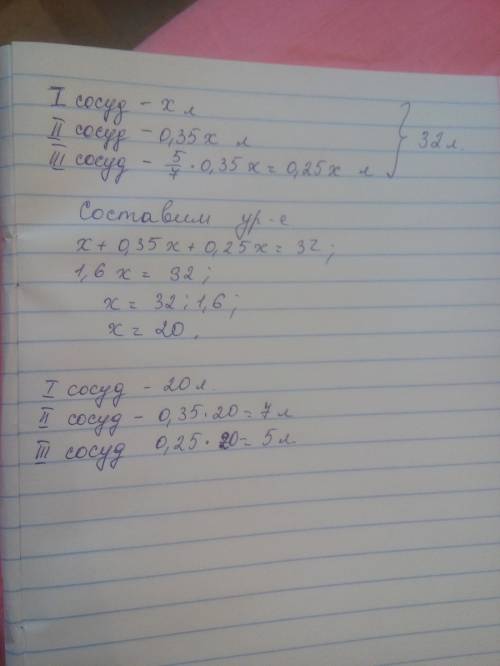 I сосуд – x л
II сосуд – 0,35x л
III сосуд – 5/7 · 0,35x = 0,25x л } 32 л.
Составим ур-е
x + 0,35x + 0,25x = 32;
1,6x = 32;
x = 32 : 1,6;
x = 20.
I сосуд – 20 л.
II сосуд – 0,35 · 20 = 7 л
III сосуд 0,25 · 20 = 5 л